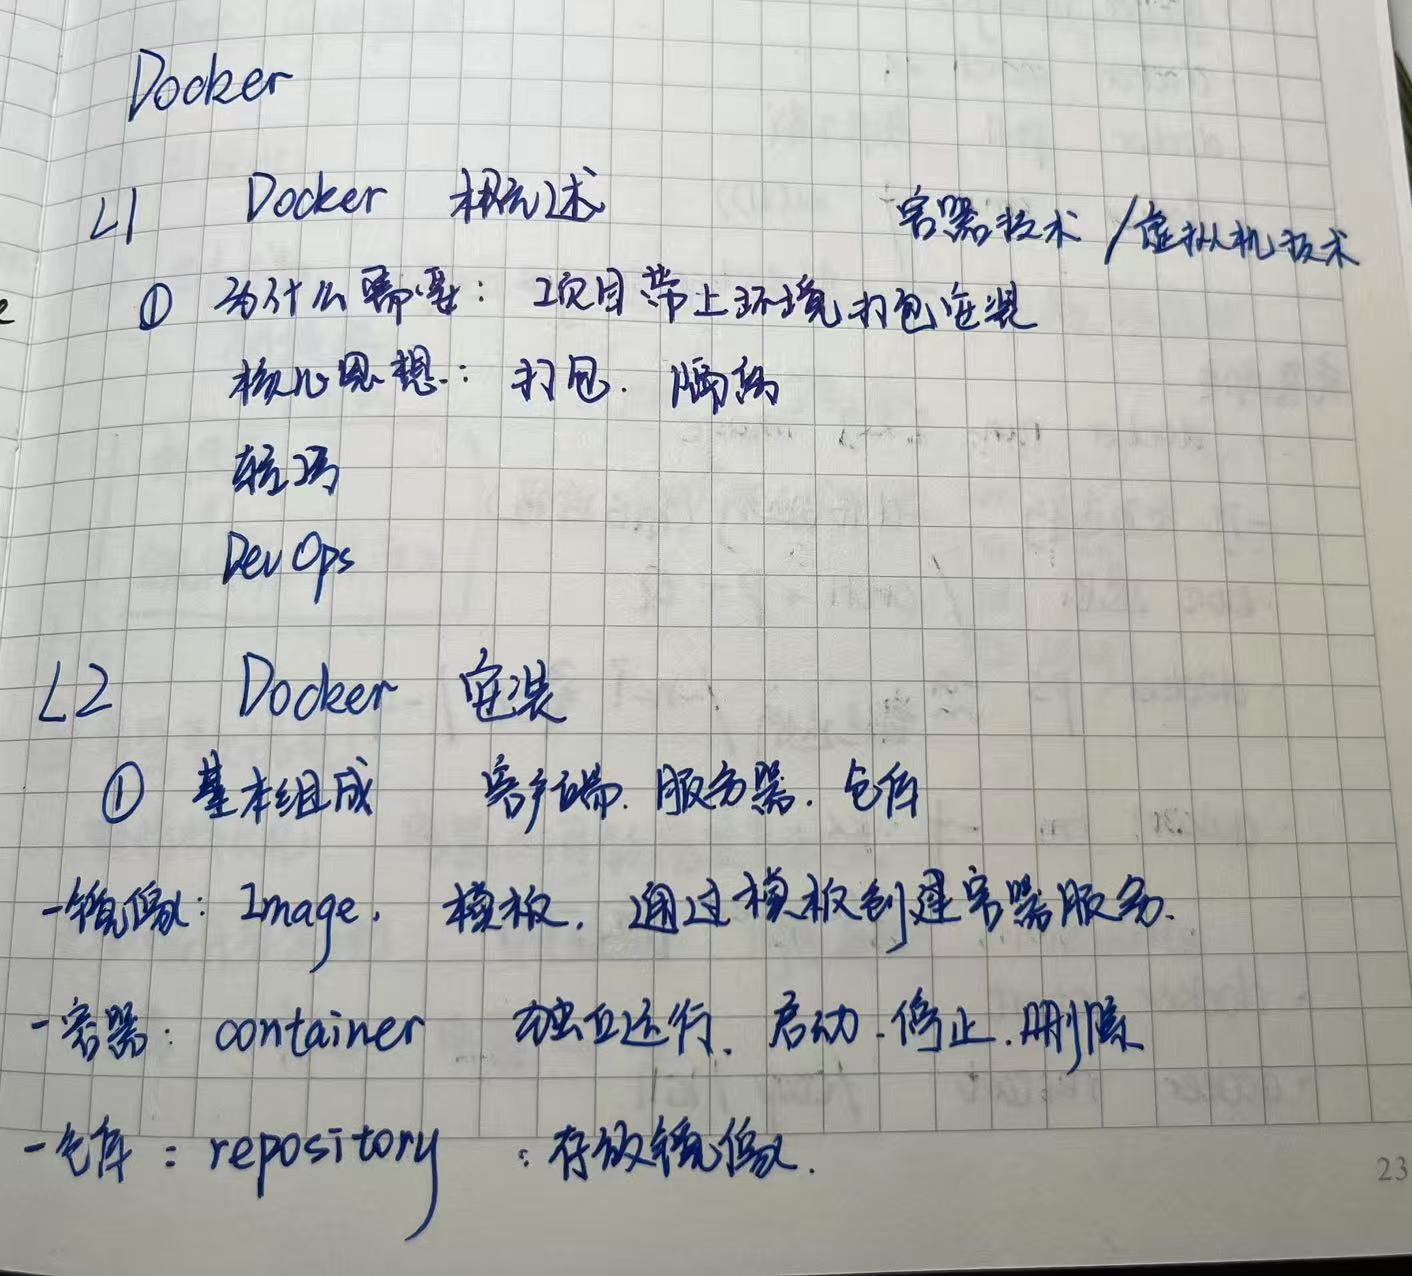 Docker
L1 Docker 概述 容器技术 / 虚拟机技术
① 为什么需要: 项目带上环境打包安装
核心思想: 打包. 隔离
轻巧
DevOps
L2 Docker 安装
① 基本组成 客户端. 服务器. 仓库
-镜像: Image. 模板. 通过模板创建容器服务.
-容器: container 独立运行. 启动.停止.删除
-仓库: repository : 存放镜像.
23